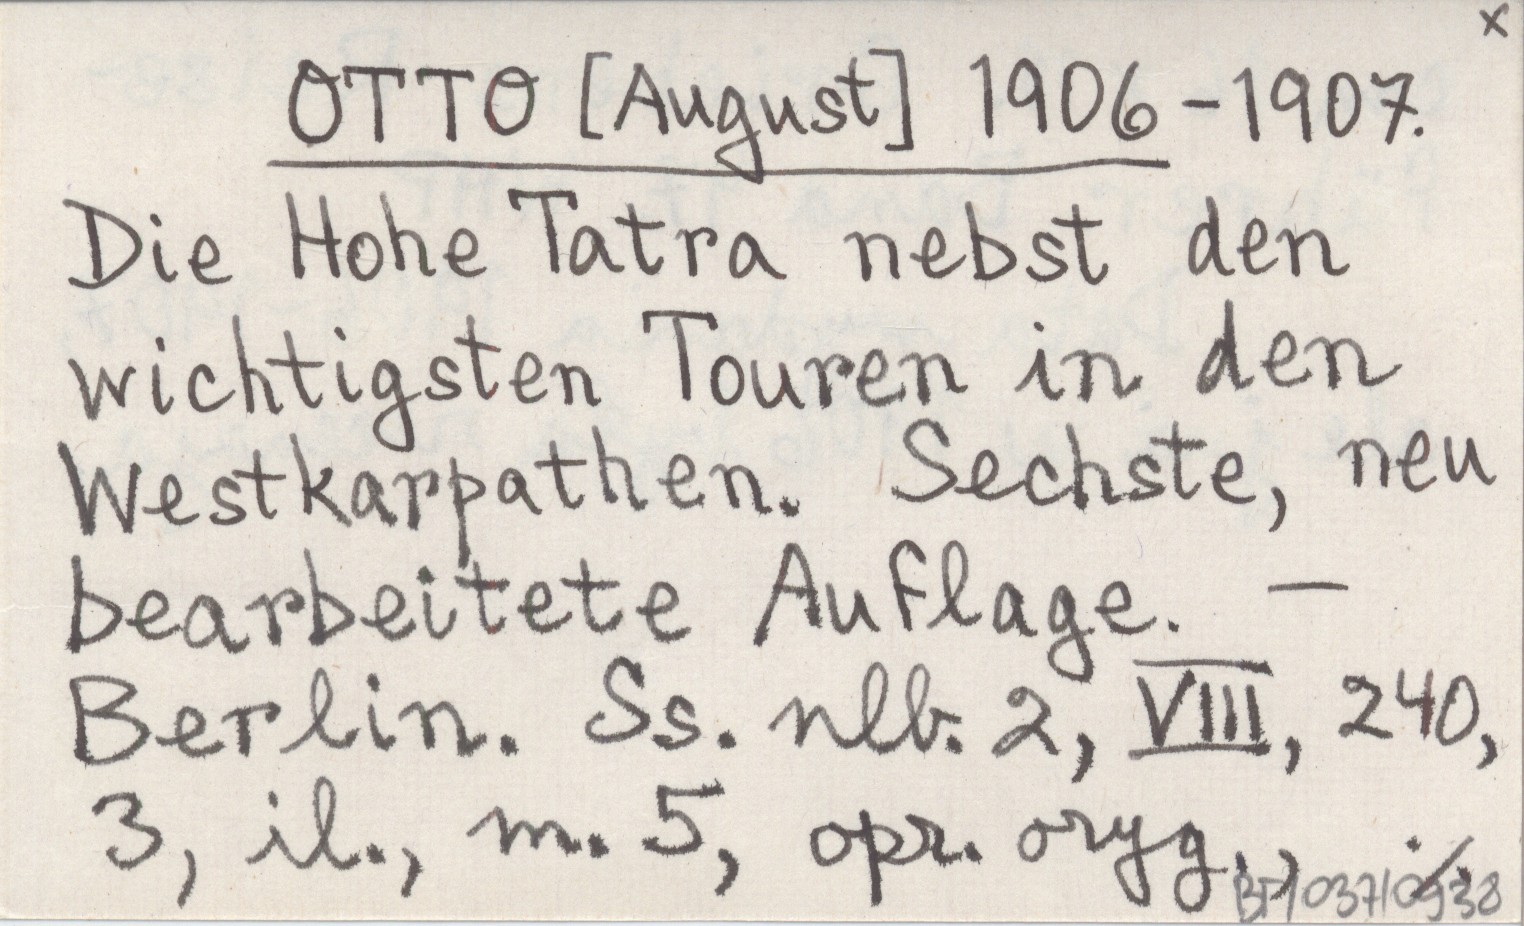 x
OTTO [August] 1906-1907.
Die Hohe Tatra nebst den
wichtigsten Touren in den
Westkarpathen. Sechste, neu
bearbeitete Auflage. —
Berlin. Ss. nlb. 2, VIII, 240,
3, il., m. 5, opr. oryg., ./.